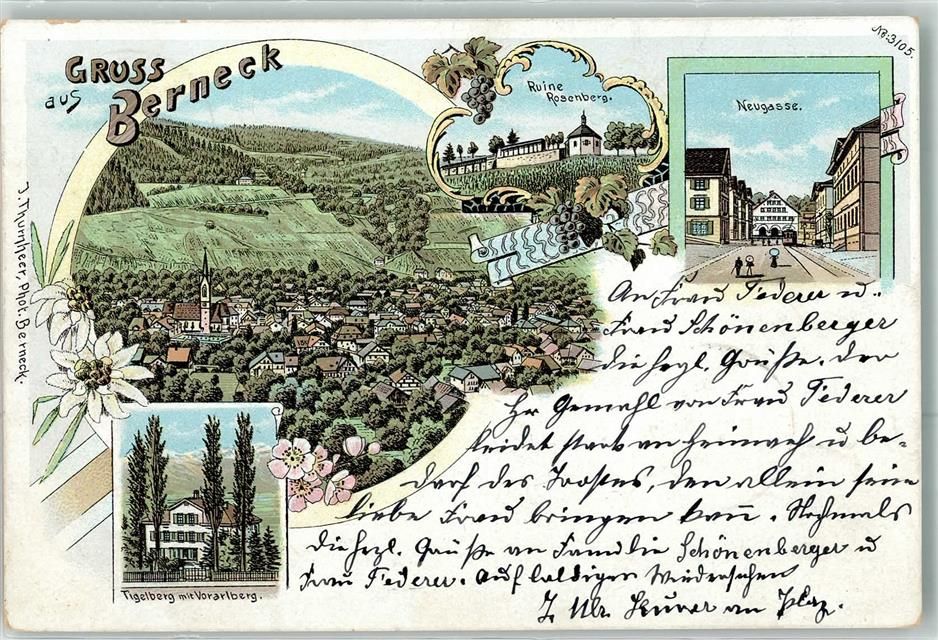 No. 3105.
GRUSS
aus
Berneck
Ruine
Rosenberg.
Neugasse.
J. Thurnheer, Phot. Berneck.
Tigelberg mit Vorarlberg.
An Frau Federer u.
Frau Schönenberger
die hzl. Grüße. Der
Hr Gemahl von Frau Federer
leidet stark an Heimweh u be-
darf des Trostes, den allein seine
liebe Frau bringen kann. Nochmals
die hzl. Grüße an Familie Schönenberger u
Frau Federer. Auf baldiges Wiedersehen
J. Ulr.